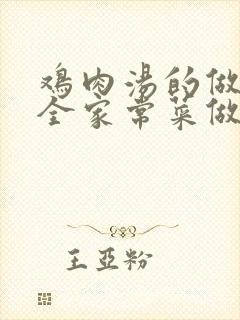 鸡肉汤的做
全家常菜做
王亚粉